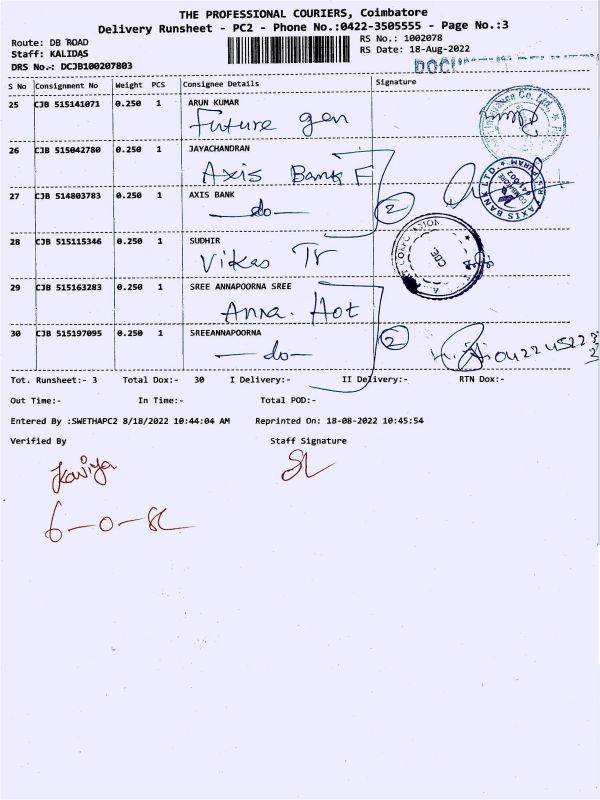 THE PROFESSIONAL COURIERS, Coimbatore
Delivery Runsheet - PC2 - Phone No.:0422-3505555 - Page No.:3
Route: DB ROAD
RS No.: 1002078
Staff: KALIDAS
RS Date: 18-Aug-2022
DRS No.: DCJB100207803
S No Consignment No Weight PCS Consignee Details Signature
25 CJB 515141071 0.250 1 ARUN KUMAR
Future gen
26 CJB 515042780 0.250 1 JAYACHANDRAN
Axis Bank F
27 CJB 514803783 0.250 1 AXIS BANK
—do— 2
28 CJB 515115346 0.250 1 SUDHIR
Vikas Tr
29 CJB 515163283 0.250 1 SREE ANNAPOORNA SREE
Anna. Hot
30 CJB 515197095 0.250 1 SREEANNAPOORNA
—do— 2
Tot. Runsheet:- 3 Total Dox:- 30 I Delivery:- II Delivery:- RTN Dox:-
Out Time:- In Time:- Total POD:-
Entered By :SWETHAPC2 8/18/2022 10:44:04 AM Reprinted On: 18-08-2022 10:45:54
Verified By Staff Signature